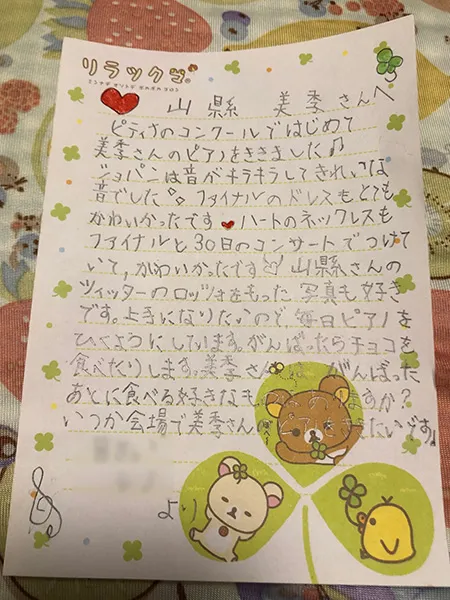 リラックマ
山縣 美季さんへ
ピティナのコンクールではじめて
美季さんのピアノをききました♪
ショパンは音がキラキラしてきれいな
音でした。ファイナルのドレスもとても
かわいかったです ハートのネックレスも
ファイナルと30日のコンサートでつけて
いて、かわいかったです 山縣さんの
ツィッターのロッツォをもった写真も好き
です。上手になりたいので、毎日ピアノを
ひくようにしています。がんばったらチョコを
食べたりします。美季さんは、がんばった
あとに食べる好きなもの ますか?
いつか会場で美季さん たいです。
より